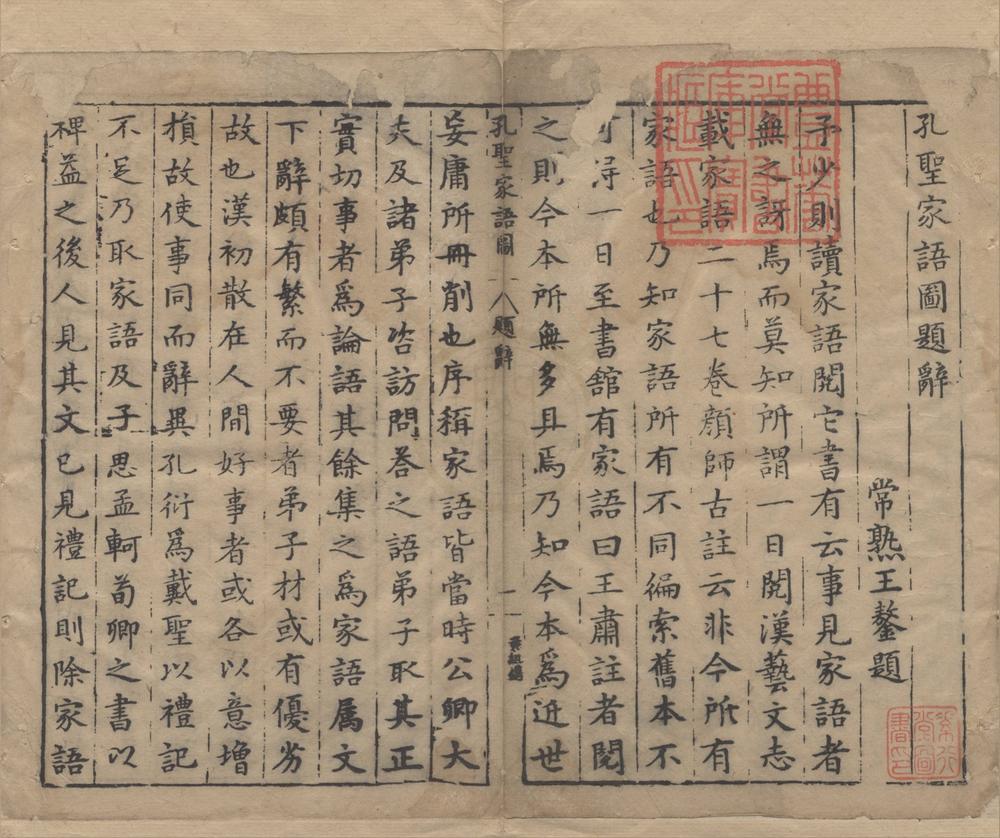 孔聖家語圖題辭
常熟王鏊題
予少則讀家語閱它書有云事見家語者
無之訝焉而莫知所謂一日閱漢藝文志
載家語二十七卷顏師古註云非今所有
家語也乃知家語所有不同徧索舊本不
可淂一日至書舘有家語曰王肅註者閱
之則今本所無多具焉乃知今本爲近世
孔聖家語圖 題辭 一
妄庸所冊削也序稱家語皆當時公卿大
夫及諸弟子咨訪問荅之語弟子取其正
實切事者爲論語其餘集之爲家語属文
下辭頗有繁而不要者弟子材或有優劣
故也漢初散在人間好事者或各以意增
損故使事同而辭異孔衍爲戴聖以禮記
不足乃取家語及子思孟軻荀卿之書以
裨益之後人見其文已見禮記則除家語